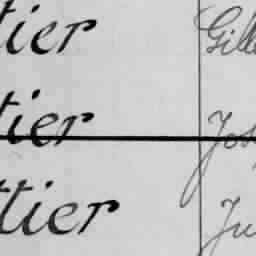 tier Gill
tier Jos
ttier Ju